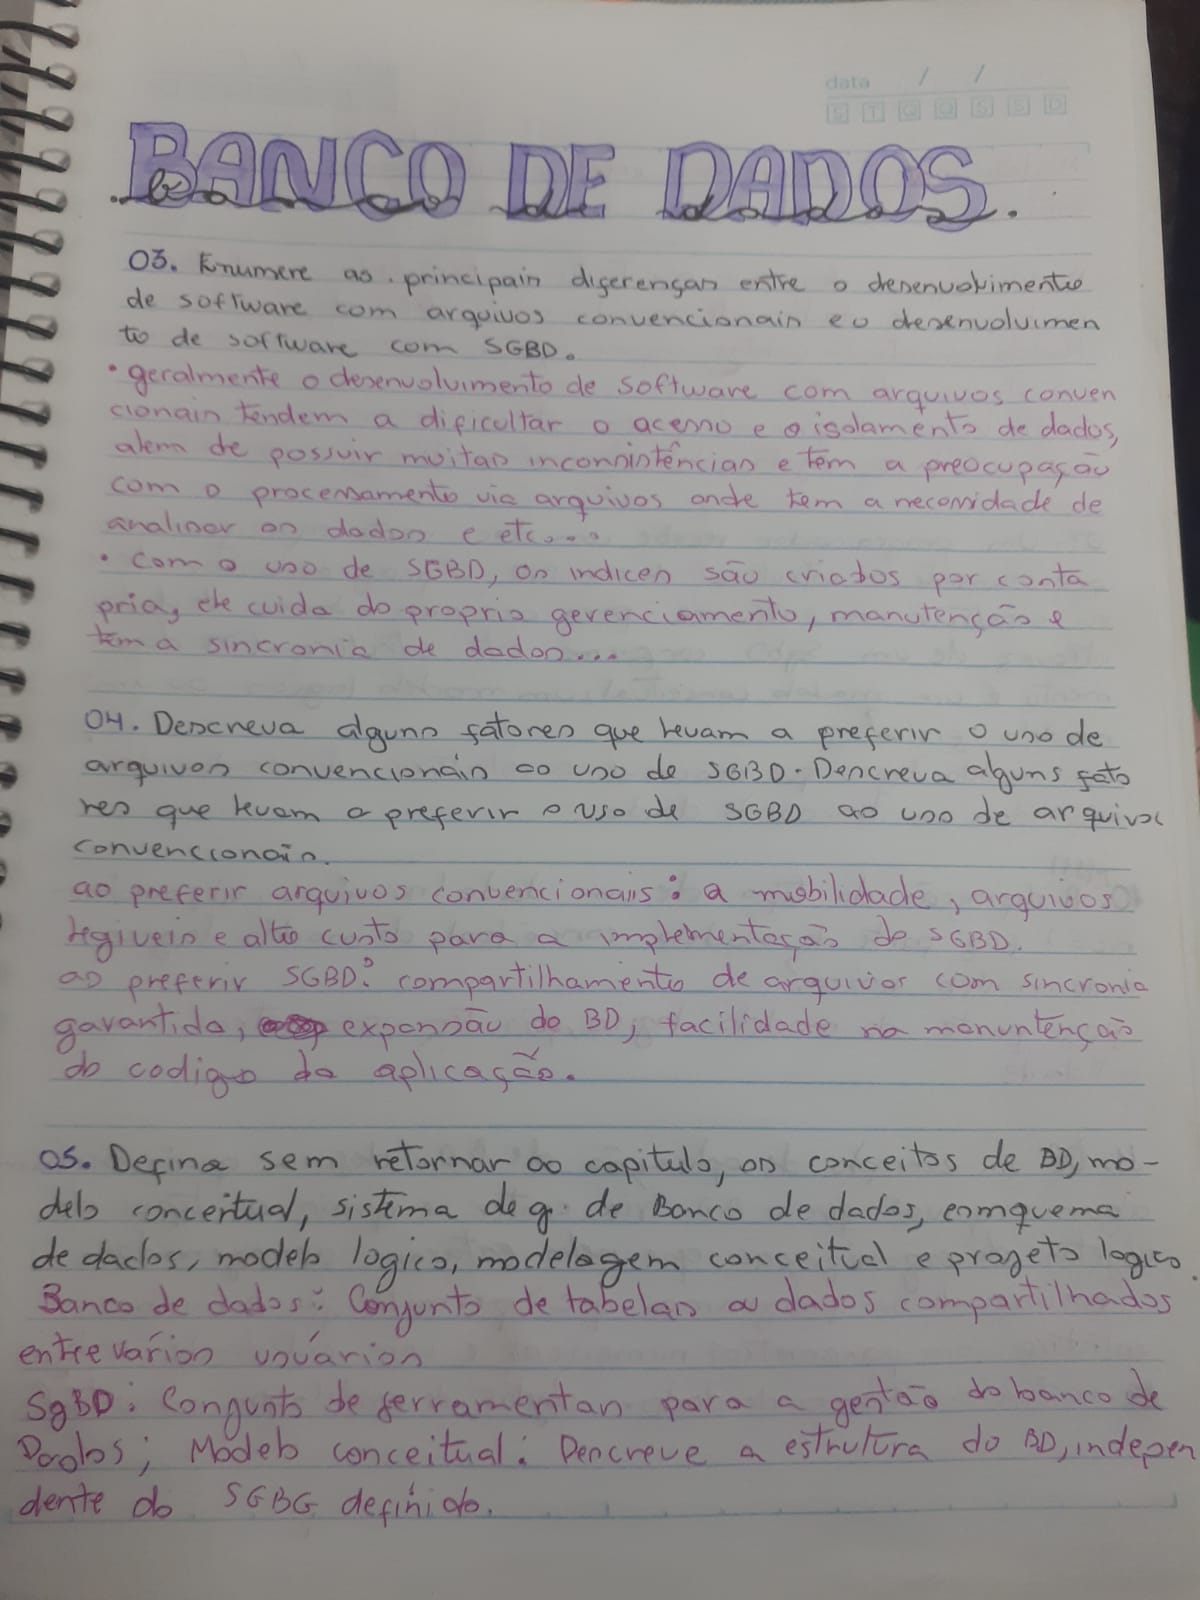 data / /
S T Q Q S S D
BANCO DE DADOS.
banco de dados.
03. Enumere as principais diferenças entre o desenvolvimento
de software com arquivos convencionais e o desenvolvimen
to de software com SGBD.
• geralmente o desenvolvimento de software com arquivos conven
cionais tendem a dificultar o acesso e o isolamento de dados,
alem de possuir muitas inconsistências e tem a preocupação
com o processamento via arquivos onde tem a necessidade de
analisar os dados e etc....
• Com o uso de SGBD, os indices são criados por conta
pria, ele cuida do proprio gerenciamento, manutenção e
tem a sincronia de dados...
04. Descreva alguns fatores que levam a preferir o uso de
arquivos convencionais ao uso de SGBD. Descreva alguns fato
res que levam a preferir o uso de SGBD ao uso de arquivos
convencionais.
ao preferir arquivos convencionais: a mobilidade, arquivos
legiveis e alto custo para a implementação do SGBD.
ao preferir SGBD: compartilhamento de arquivos com sincronia
garantida, expansão do BD, facilidade na manuntenção
do codigo da aplicação.
05. Defina sem retornar ao capitulo, os conceitos de BD, mo-
delo conceitual, sistema de g. de Banco de dados, esmquema
de dados, modelo logico, modelagem conceitual e projeto logico.
Banco de dados: Conjunto de tabelas a dados compartilhados
entre vários usuários
SgBD: Congunto de ferramentas para a gestão do banco de
Dados; Modelo conceitual: Descreve a estrutura do BD, indepen
dente do SGBG definido.